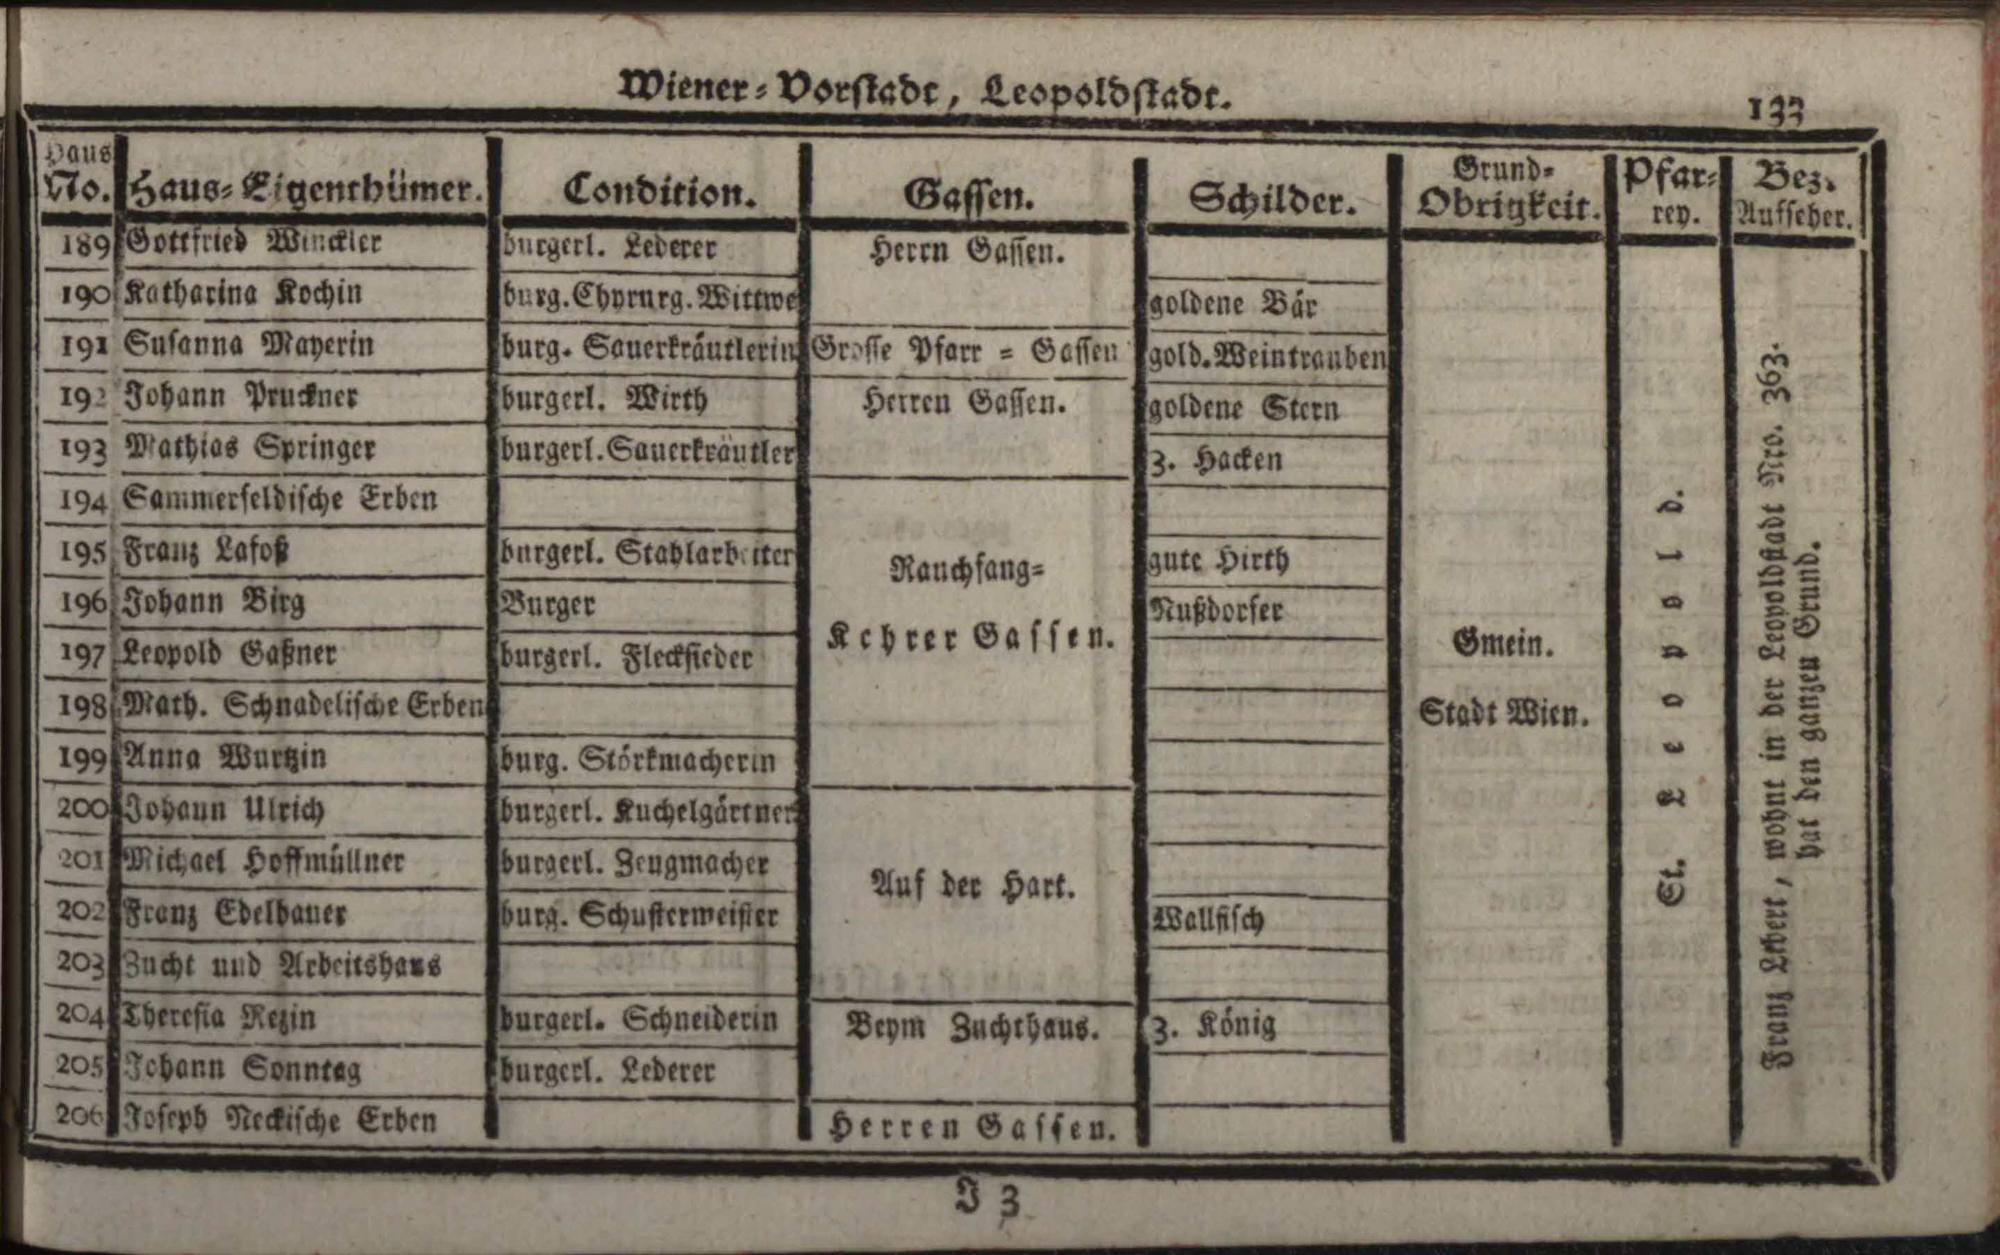 Wiener-Vorstadt, Leopoldstadt. 133
Haus No. Haus-Eigenthümer. Condition. Gassen. Schilder. Grund-Obrigkeit. Pfarrey. Bez. Aufseher.
189 Gottfried Winckler burgerl. Lederer Herrn Gassen.
190 Katharina Kochin burg. Chyrurg. Wittwe goldene Bär
191 Susanna Mayerin burg. Sauerkräutlerin Grosse Pfarr-Gassen gold. Weintrauben
192 Johann Pruckner burgerl. Wirth Herren Gassen. goldene Stern
193 Mathias Springer burgerl. Sauerkräutler 3. Hacken
194 Sammerfeldische Erben
195 Franz Lafoß burgerl. Stahlarbeiter gute Hirth
Rauchfang-
196 Johann Birg Burger Nußdorfer
Kehrer Gassen.
197 Leopold Gaßner burgerl. Flecksieder
Gmein.
198 Math. Schnadelische Erben
Stadt Wien.
199 Anna Wurtzin burg. Störkmacherin
200 Johann Ulrich burgerl. Kuchelgärtner
201 Michael Hoffmüllner burgerl. Zeugmacher
Auf der Hart.
202 Franz Edelbauer burg. Schustermeister Wallfisch
203 Zucht und Arbeitshaus
204 Theresia Rezin burgerl. Schneiderin Beym Zuchthaus. 3. König
205 Johann Sonntag burgerl. Lederer
206 Joseph Neckische Erben Herren Gassen.
St. Leopold.
Franz Lebert, wohnt in der Leopoldstadt Nro. 363.
hat den ganzen Grund.
J 3